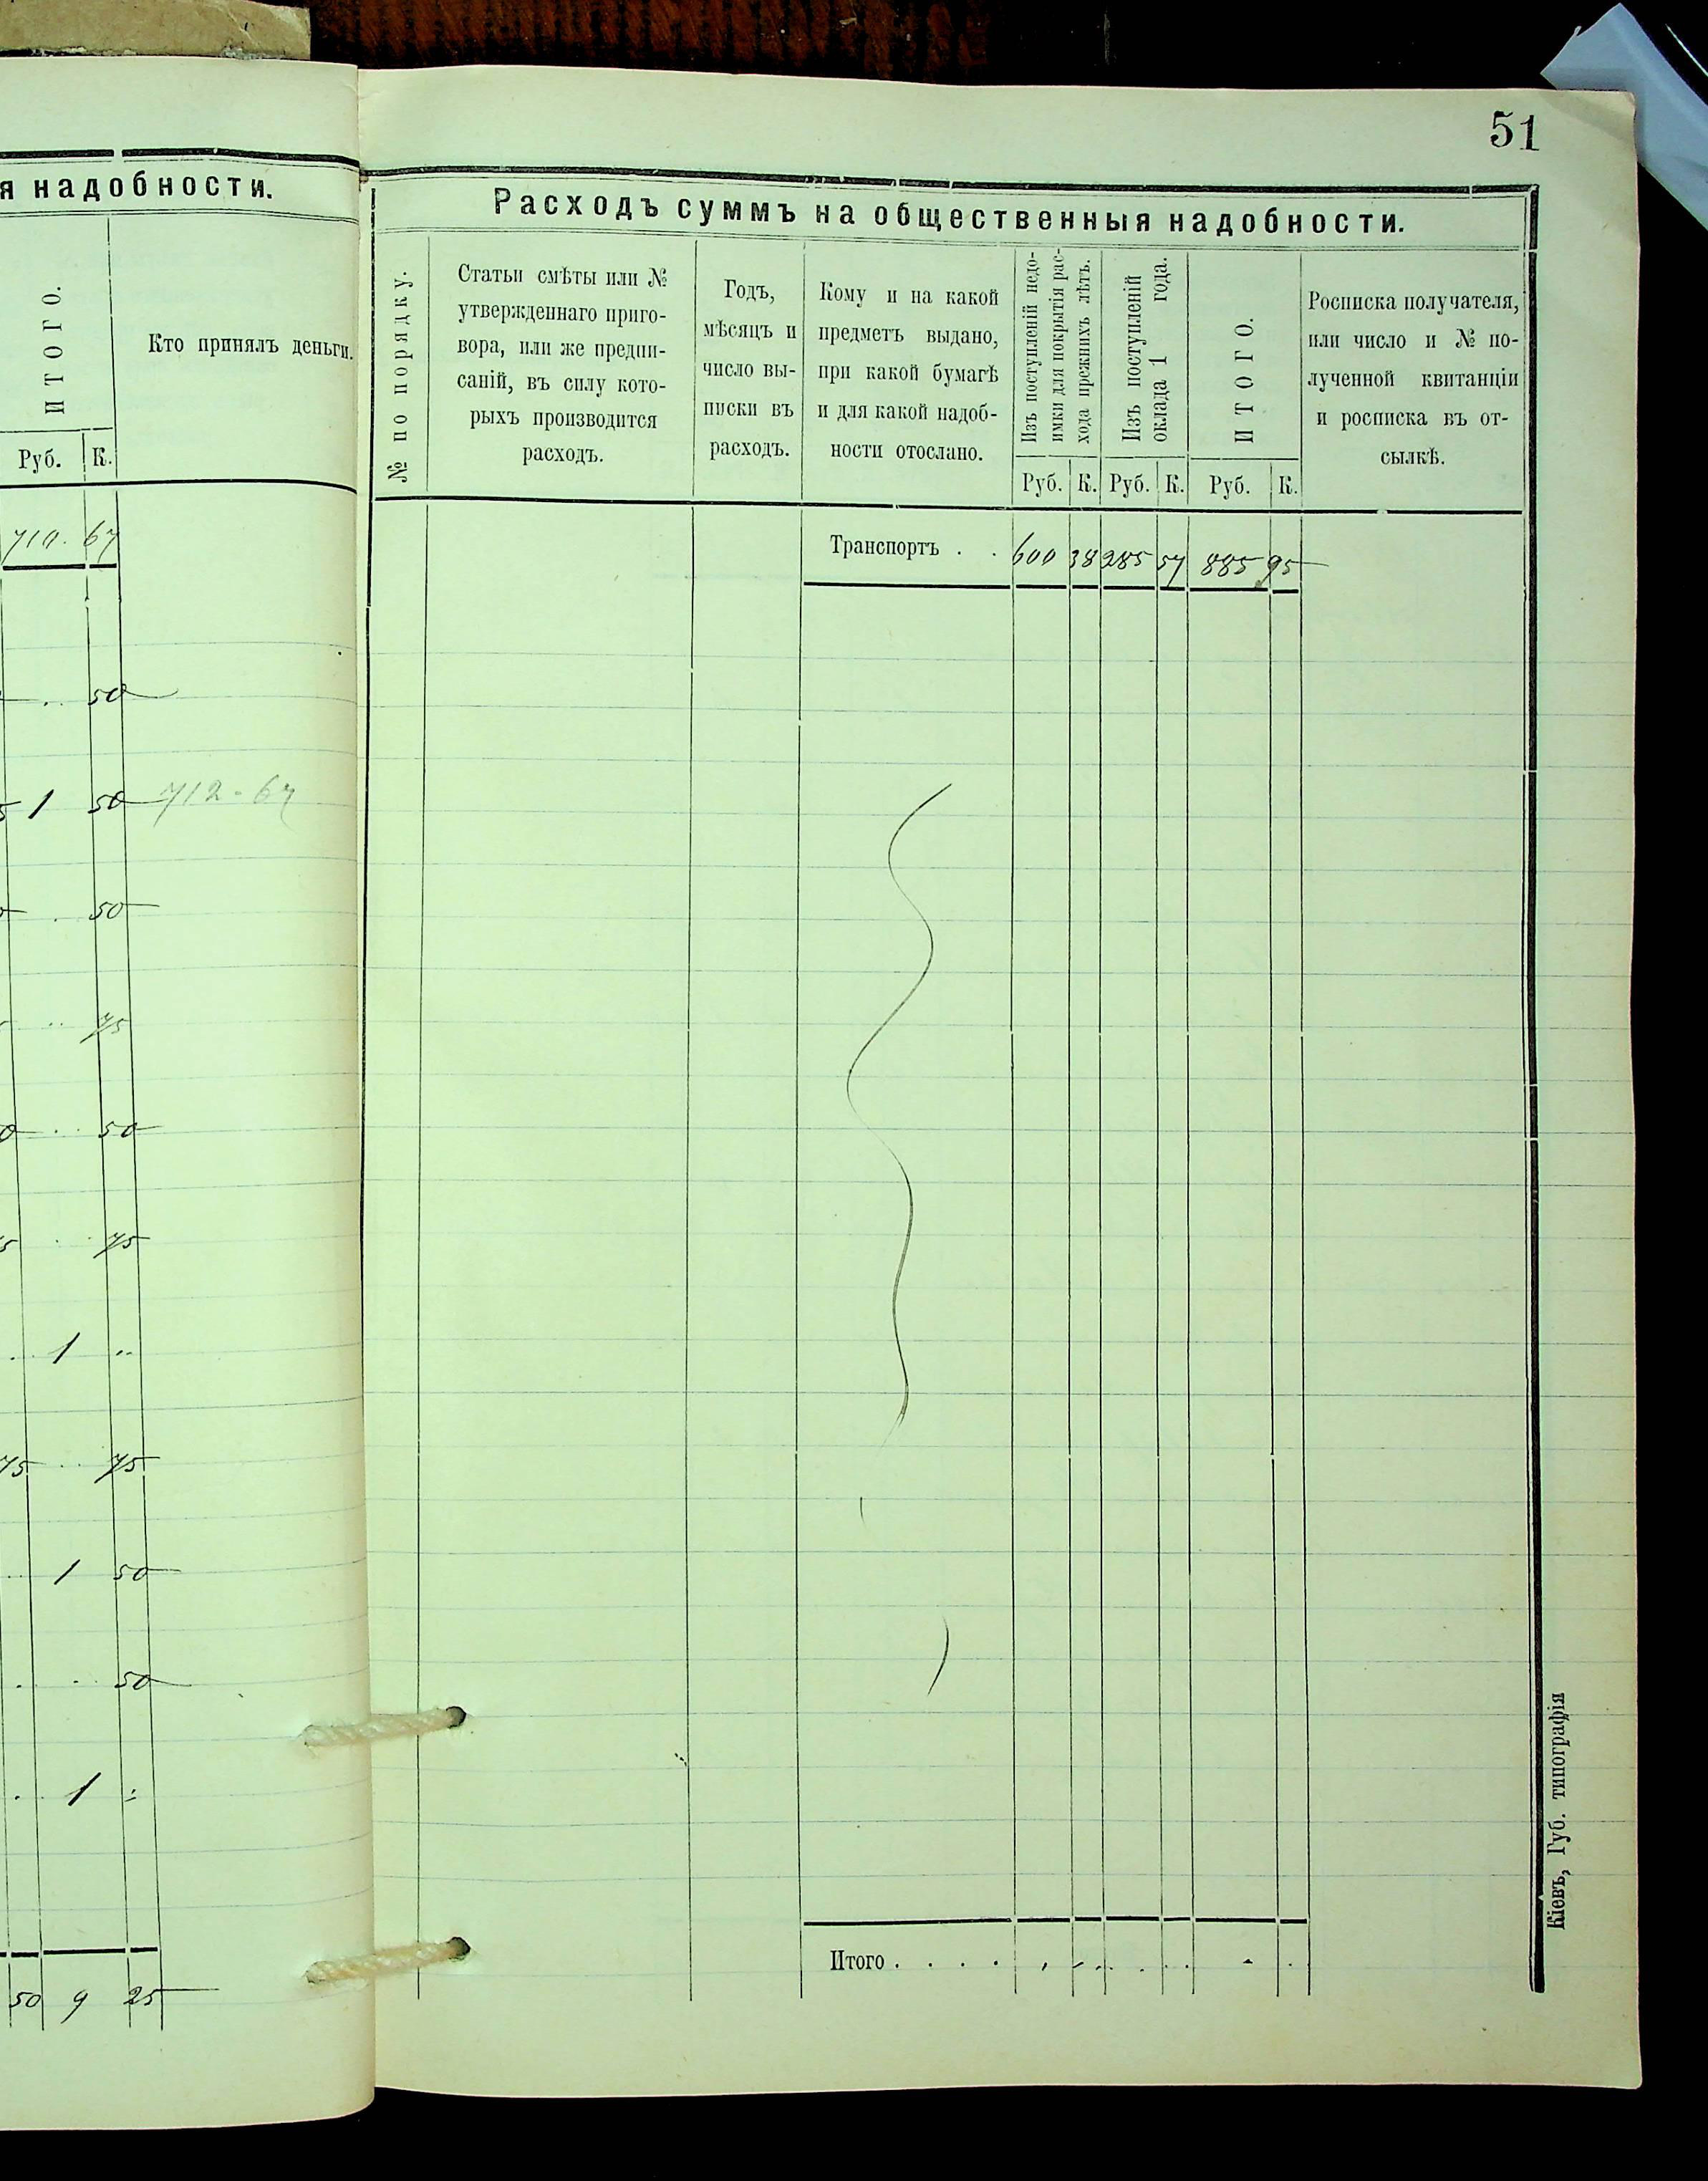 я надобности.
ИТОГО.
Кто принялъ деньги.
Руб. К.
67
50
1 50 712-67
50
75
50
75
1 "
75 75
1 50
50
1
50 9 25
51
Расходъ суммъ на общественныя надобности.
№ по порядку.
Статьи смѣты или №
утвержденнаго приго-
вора, или же предпи-
саній, въ силу кото-
рыхъ производится
расходъ.
Годъ,
мѣсяцъ и
число вы-
писки въ
расходъ.
Кому и на какой
предметъ выдано,
при какой бумагѣ
и для какой надоб-
ности отослано.
Изъ поступленій недо-
имки для покрытія рас-
хода прежнихъ лѣтъ.
Изъ поступленій
оклада 1 года.
ИТОГО.
Росписка получателя,
или число и № по-
лученной квитанціи
и росписка въ от-
сылкѣ.
Руб. К. Руб. К. Руб. К.
Транспортъ . . 600 38 285 57 885 95
Итого . . . .
Кіевъ, Губ. типографія